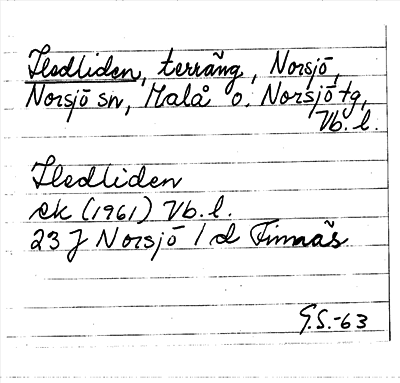 Hedliden, terräng, Norsjö,
Norsjö sn, Malå o. Norsjö tg,
Vb. l.
Hedliden
ek (1961) Vb. l.
23 J Norsjö / d Finnäs
G.S.-63